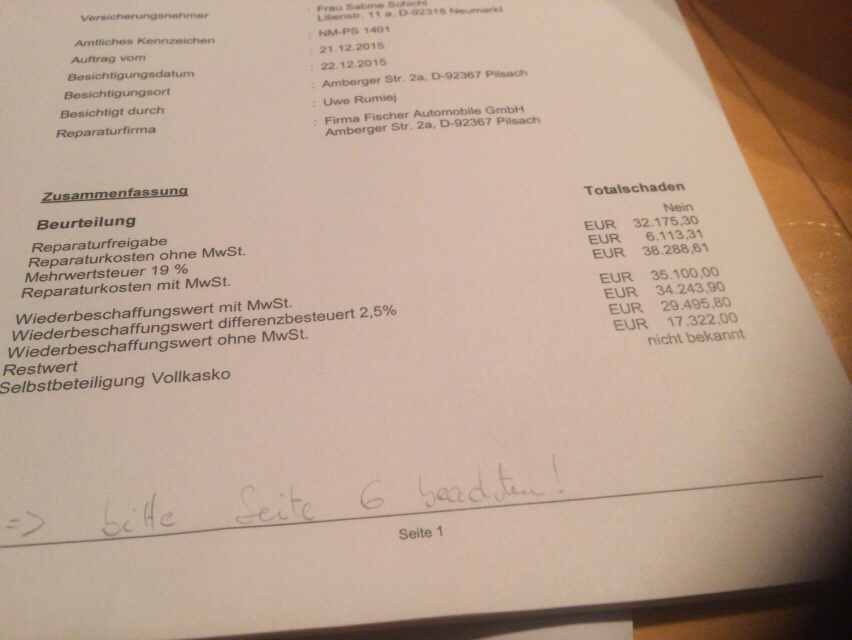 Versicherungsnehmer : Frau Sabine Schichl
Lilienstr. 11 a, D-92318 Neumarkt
Amtliches Kennzeichen : NM-PS 1401
Auftrag vom : 21.12.2015
Besichtigungsdatum : 22.12.2015
Besichtigungsort : Amberger Str. 2a, D-92367 Pilsach
Besichtigt durch : Uwe Rumiej
Reparaturfirma : Firma Fischer Automobile GmbH
Amberger Str. 2a, D-92367 Pilsach
Zusammenfassung
Beurteilung Totalschaden
Reparaturfreigabe Nein
Reparaturkosten ohne MwSt. EUR 32.175,30
Mehrwertsteuer 19 % EUR 6.113,31
Reparaturkosten mit MwSt. EUR 38.288,61
Wiederbeschaffungswert mit MwSt. EUR 35.100,00
Wiederbeschaffungswert differenzbesteuert 2,5% EUR 34.243,90
Wiederbeschaffungswert ohne MwSt. EUR 29.495,80
Restwert EUR 17.322,00
Selbstbeteiligung Vollkasko nicht bekannt
=> bitte Seite 6 beachten!
Seite 1